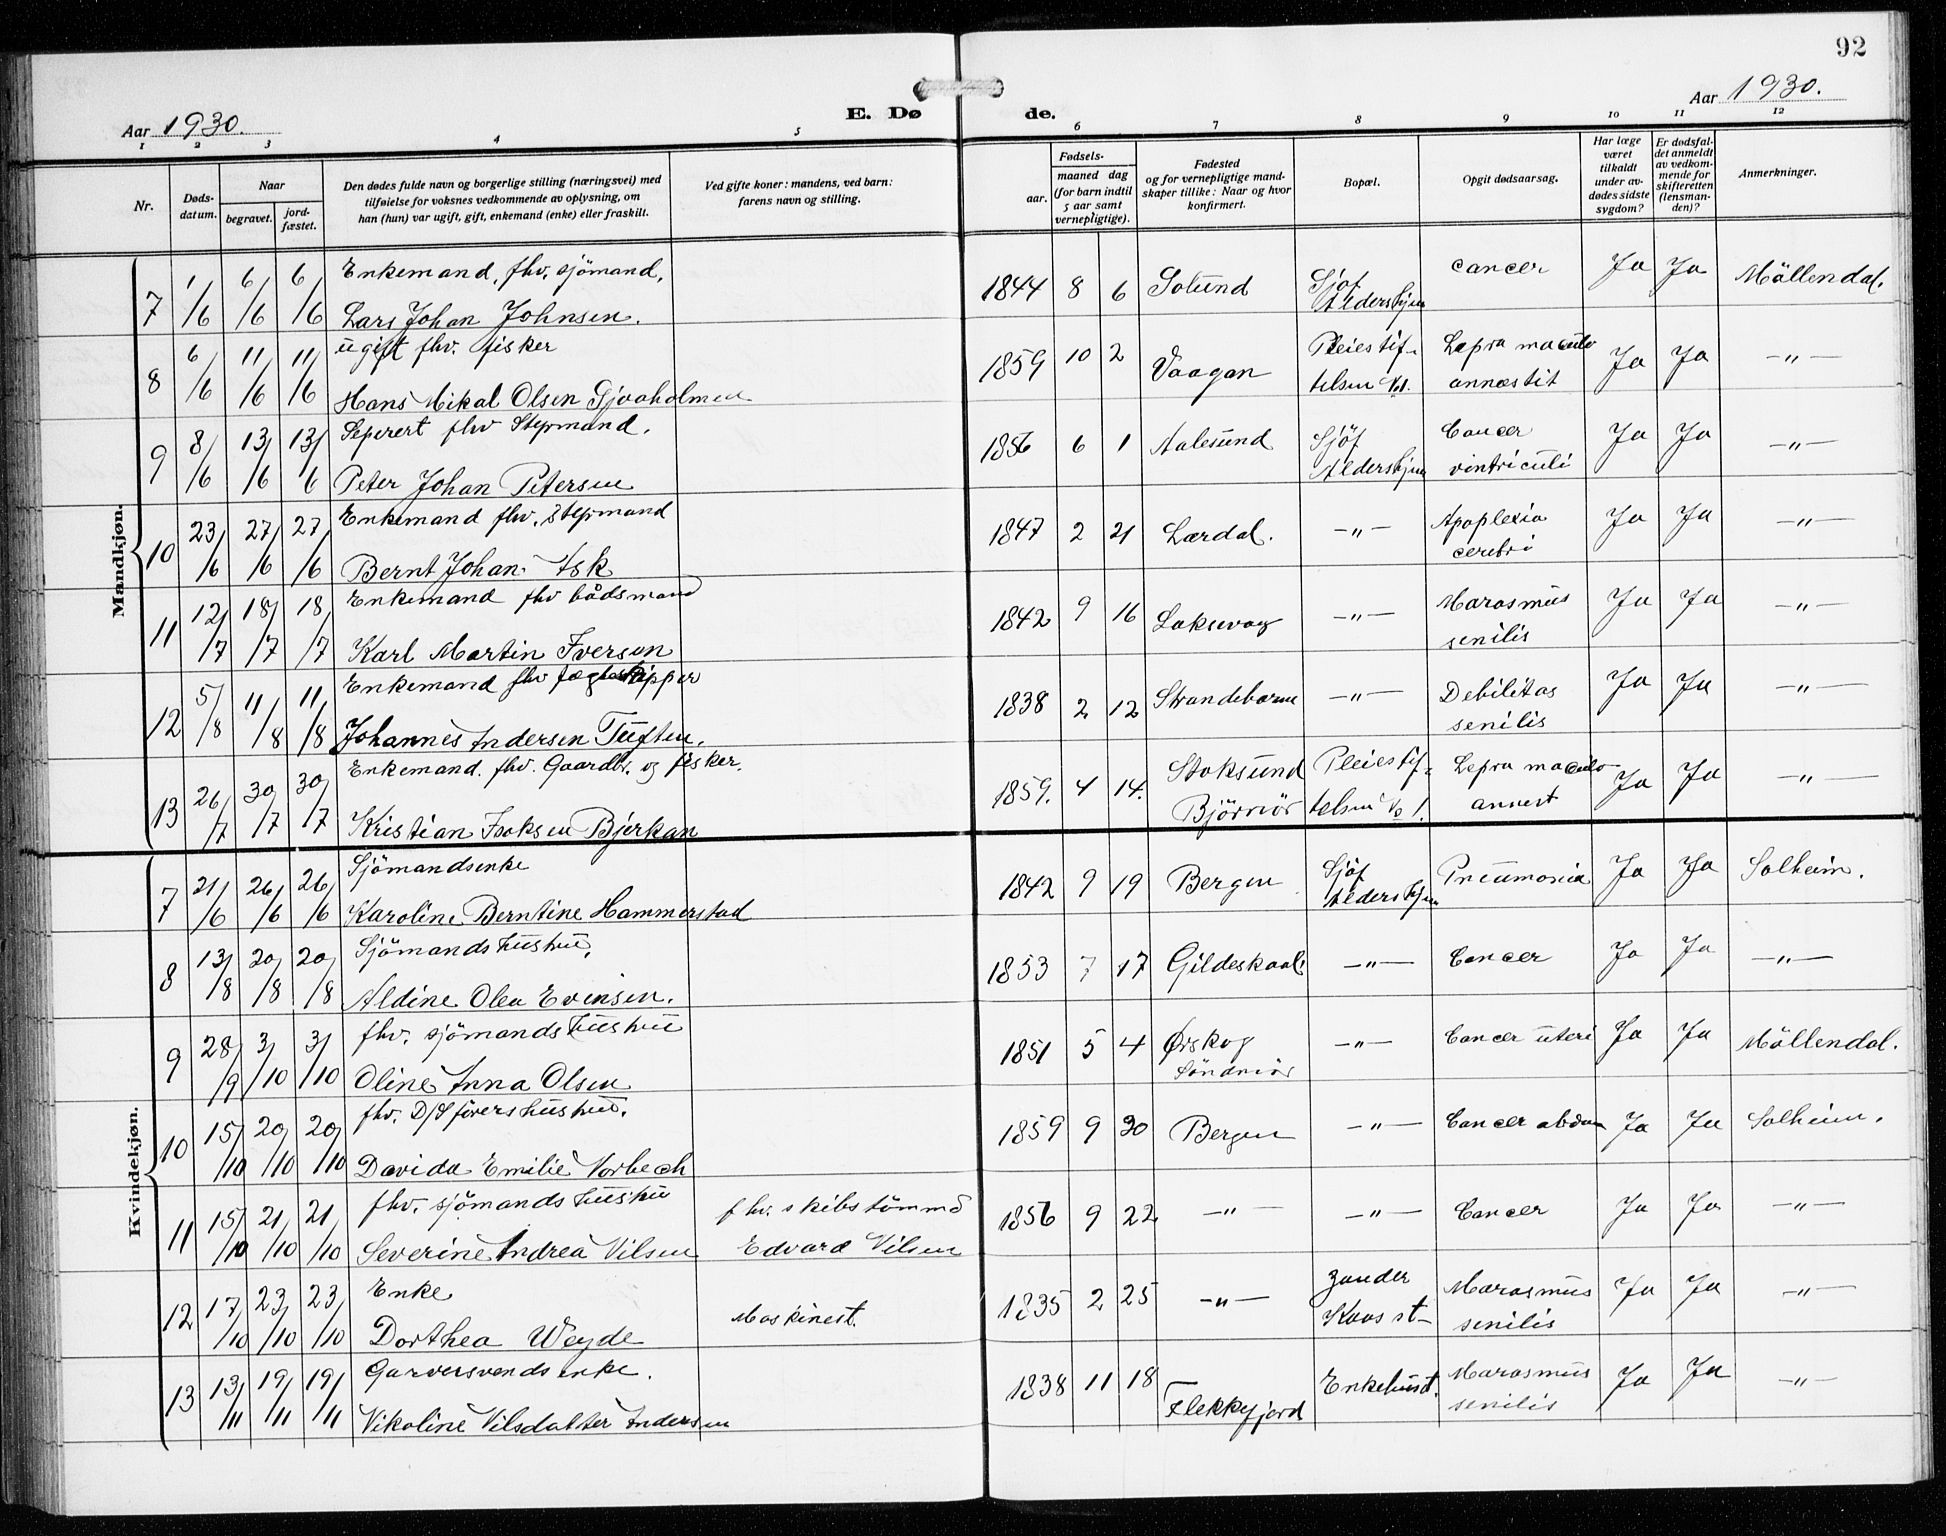 92
Aar 1930. E. Dø de. Aar 1930.
1 2 3 4 5 6 7 8 9 10 11 12
Nr. Døds-datum. Naar begravet. jord-fæstet. Den dødes fulde navn og borgerlige stilling (næringsvei) med tilføielse for voksnes vedkommende av oplysning, om han (hun) var ugift, gift, enkemand (enke) eller fraskilt. Ved gifte koner: mandens, ved barn: farens navn og stilling. Fødsels- aar. maaned dag (for barn indtil 5 aar samt vernepligtige). Fødested og for vernepligtige mand-skaper tillike: Naar og hvor konfirmert. Bopæl. Opgit dødsaarsag. Har læge været tilkaldt under av-dødes sidste sygdom? Er dødsfal-det anmeldt av vedkom-mende for skifteretten (lensman-den)? Anmerkninger.
Mandkjøn.
7 1/6 6/6 6/6 Enkemand, fhv. sjömand, 1844 8 6 Solund Sjöf cancer Ja Ja Möllendal.
Lars Johan Johnsen. Aldershjem
8 6/6 11/6 11/6 ugift fhv. fisker 1859 10 2 Vaagan Pleiestif- Lepra maculo Ja Ja -"-
Hans Mikal Olsen Gjvaholmen telsen No1. annæstit
9 8/6 13/6 13/6 Seperert fhv Styrmand. 1856 6 1 Aalesund Sjöf Cancer Ja Ja -"-
Peter Johan Petersen Aldershjem vintriculi
10 23/6 27/6 27/6 Enkemand fhv. Styrmand 1847 2 21 Lærdal. -"- Apoplexia Ja Ja -"-
Bernt Johan Ask cerebri
11 12/7 18/7 18/7 Enkemand fhv bådsmand 1842 9 16 Laksevag -"- Marasmus Ja Ja -"-
Karl Martin Iversen senilis
12 5/8 11/8 11/8 Enkemand fhv 1838 2 12 Strandebarm -"- Debilitas Ja Ja -"-
Johannes Andersen Tuften. senilis
13 26/7 30/7 30/7 Enkemand. fhv. Gaardbr. og fisker. 1859. 4 14. Stoksund Pleiestif- Lepra maculo Ja Ja -"-
Kristian Isaksen Bjerkan Björnör telsen No 1. annest
Kvindekjøn.
7 21/6 26/6 26/6 Sjömandsenke 1842 9 19 Bergen Sjöf Pneumonia Ja Ja Solheim.
Karoline Berntine Hammerstad Aldershjem
8 13/8 20/8 20/8 Sjömandshustru, 1853 7 17 Gildeskaal. -"- Cancer Ja Ja -"-
Aldine Olea Evensen.
9 28/9 3/10 3/10 fhv. sjömandshustru 1851 5 4 Ørskog -"- Cancer uteri Ja Ja Möllendal.
Oline Anna Olsen Söndmör
10 15/10 20/10 20/10 fhv. D/S förershustru. 1859 9 30 Bergen -"- Cancer abdom Ja Ja Solheim.
Davida Emilie Vorbech
11 15/10 21/10 21/10 fhv. sjömandshustru fhv. skibstömmd 1856 9 22 -"- -"- Cancer Ja Ja -"-
Severine Andrea Nilsen Edvard Nilsen
12 17/10 23/10 23/10 Enke Maskinest. 1835 2 25 -"- Zander Marasmus Ja Ja -"-
Dorthea Weyde Kaas st- senilis
13 13/11 19/11 19/11 Garversvendsenke. 1838 11 18 Flekkefjord Enkehust. Marasmus Ja Ja -"-
Nikoline Nilsdatter Andersen senilis